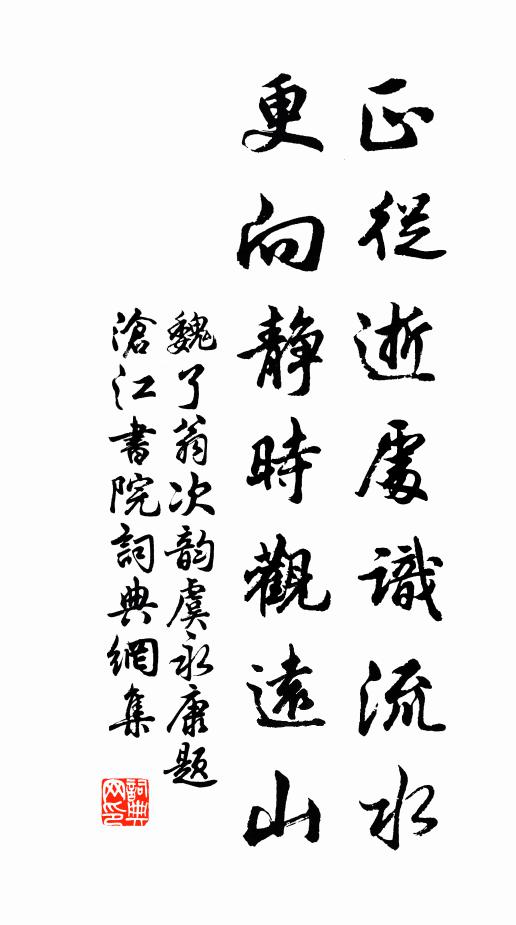 正從逝處識流水
更向靜時觀遠山
魏了翁次韵虞永康題
滄江書院詞典網集
詞典
网印